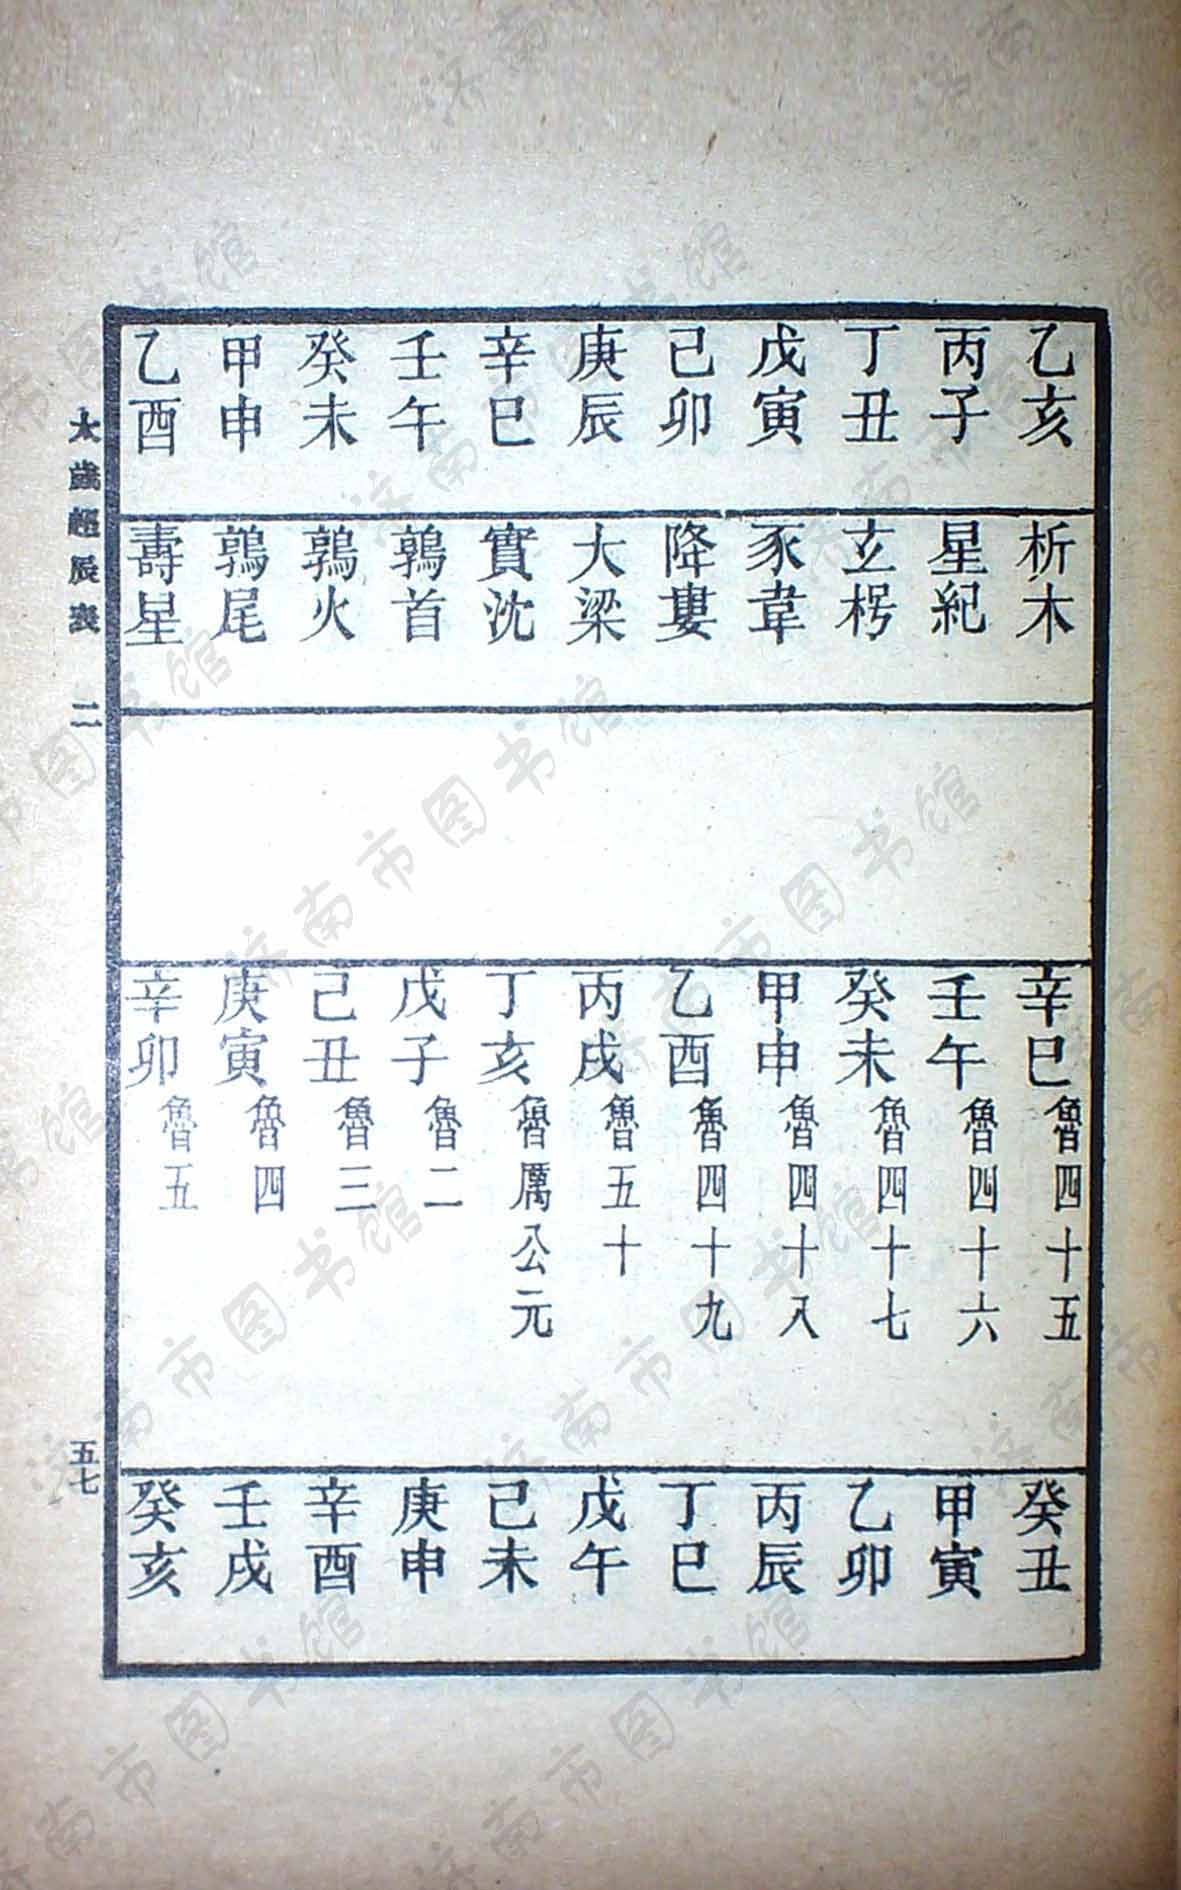 乙亥
丙子
丁丑
戊寅
己卯
庚辰
辛巳
壬午
癸未
甲申
乙酉
析木
星紀
玄枵
豕韋
降婁
大梁
實沈
鶉首
鶉火
鶉尾
壽星
辛巳魯四十五
壬午魯四十六
癸未魯四十七
甲申魯四十八
乙酉魯四十九
丙戌魯五十
丁亥魯厲公元
戊子魯二
己丑魯三
庚寅魯四
辛卯魯五
癸丑
甲寅
乙卯
丙辰
丁巳
戊午
己未
庚申
辛酉
壬戌
癸亥
太歲超辰表 二 五七
济南市图书馆